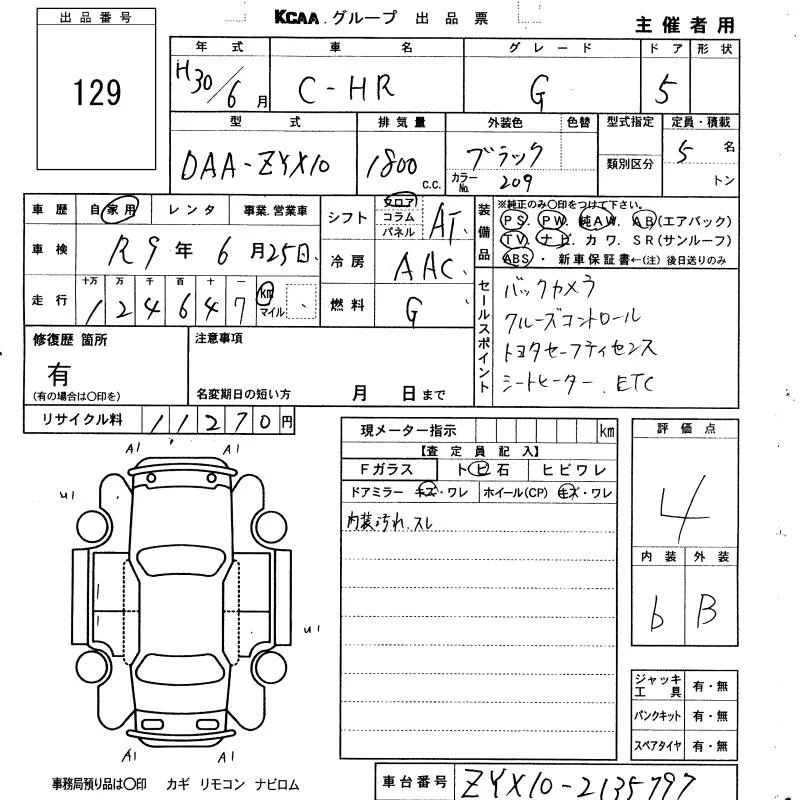 KCAA グループ 出品票
主催者用
出品番号
129
年式 車名 グレード ドア 形状
H30/6月 C-HR G 5
型式 排気量 外装色 色替 型式指定 定員・積載
DAA-ZYX10 1800 C.C. ブラック カラーNo. 209 類別区分 5名 トン
車歴 自家用 レンタ 事業.営業車
車検 R9年 6月25日
走行 十万 万 千 百 十 一 km マイル
124647
シフト フロア コラム パネル AT
冷房 AAC
燃料 G
装備品 ※純正のみ〇印をつけて下さい。
PS. PW. 純AW. AB(エアバック)
TV. ナビ. カワ. SR(サンルーフ)
ABS・新車保証書←(注)後日送りのみ
セールスポイント
バックカメラ
クルーズコントロール
トヨタセーフティセンス
シートヒーター. ETC
修復歴 箇所
有
(有の場合は〇印を)
注意事項
名変期日の短い方 月 日まで
リサイクル料 11270円
現メーター指示 km
【査定員記入】
Fガラス トビ石 ヒビワレ
ドアミラー キズ・ワレ ホイール(CP) キズ・ワレ
内装汚れ.スレ
評価点
4
内装 外装
b B
A1 A1
U1
U1
A1 A1
ジャッキ工具 有・無
パンクキット 有・無
スペアタイヤ 有・無
事務局預り品は〇印 カギ リモコン ナビロム
車台番号 ZYX10-2135797